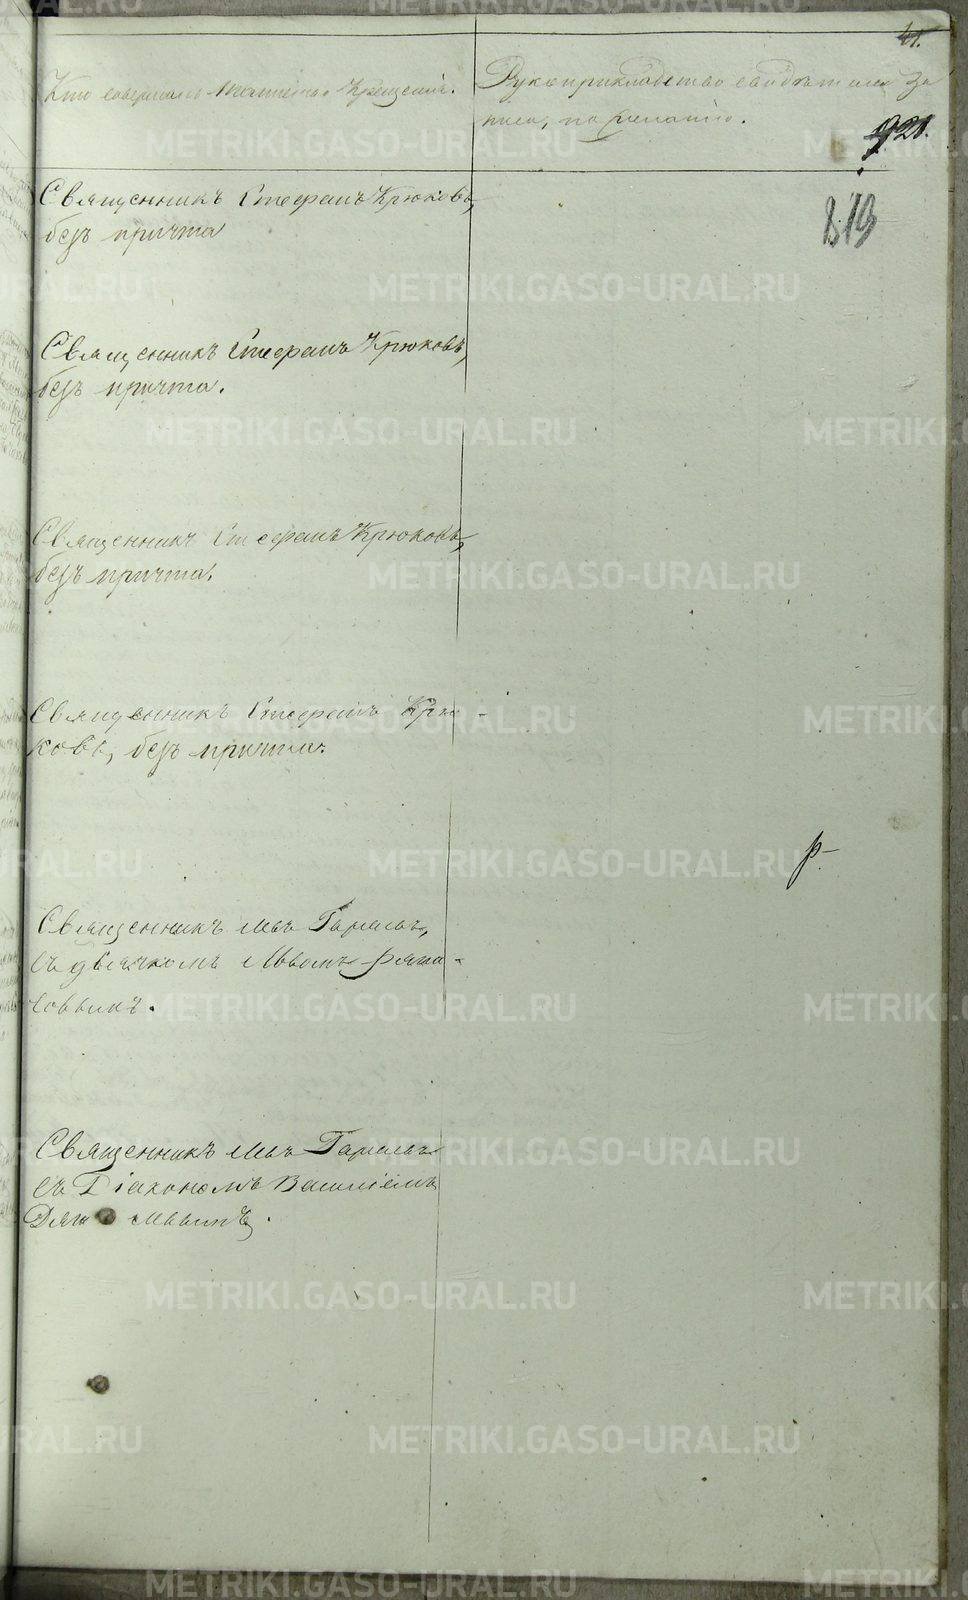 41.
Кто совершалъ таинство Крещенія.
Рукоприкладство свидѣтелей за
писи, по желанію.
920.
819
Священникъ Стефанъ Крюковъ,
безъ причта
Священникъ Стефанъ Крюковъ,
безъ причта.
Священникъ Стефанъ Крюковъ,
безъ причта.
Священникъ Стефанъ Крю-
ковъ, безъ причта.
р.
Священникъ
съ дьячкомъ
Священникъ
съ Діакономъ Василіемъ
METRIKI.GASO-URAL.RU